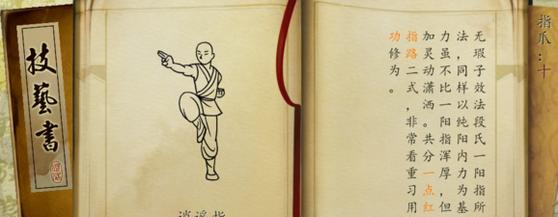 技藝書
逍遥指
指爪：十
无瑕子效法段氏一阳指所
法，同样以纯阳内力为基
力虽不比一阳指浑厚，但
加灵动潇洒。共分一点红
指路二式，非常看重习用
功修为。